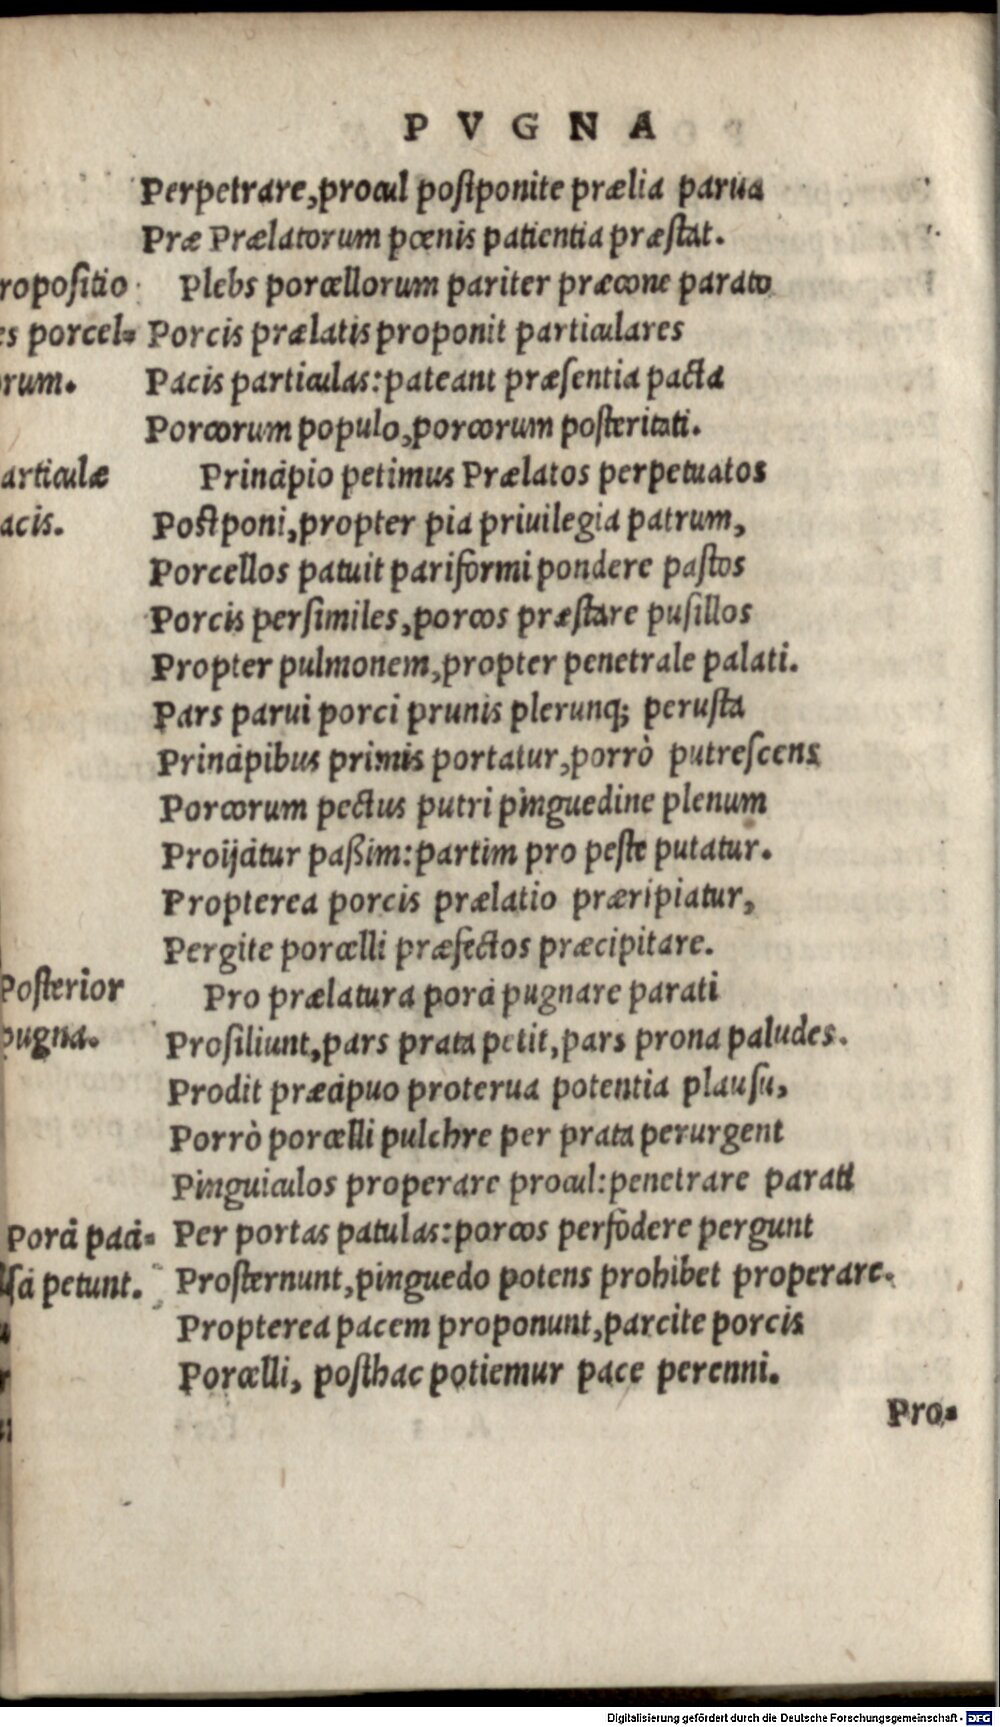 PVGNA
Perpetrare, procul postponite prælia parua
Præ Prælatorum pœnis patientia præstat.
ropositio
Plebs porcellorum pariter præcone parato
es porcel-
Porcis prælatis proponit particulares
rum.
Pacis particulas: pateant præsentia pacta
Porcorum populo, porcorum posteritati.
articulæ
Principio petimus Prælatos perpetuatos
acis.
Postponi, propter pia priuilegia patrum,
Porcellos patuit pariformi pondere pastos
Porcis persimiles, porcos præstare pusillos
Propter pulmonem, propter penetrale palati.
Pars parui porci prunis plerunq; perusta
Principibus primis portatur, porrò putrescens
Porcorum pectus putri pinguedine plenum
Proijcitur paßim: partim pro peste putatur.
Propterea porcis prælatio præripiatur,
Pergite porcelli præfectos præcipitare.
Posterior
Pro prælatura porci pugnare parati
pugna.
Prosiliunt, pars prata petit, pars prona paludes.
Prodit præcipuo proterua potentia plausu,
Porrò porcelli pulchre per prata perurgent
Pinguiculos properare procul: penetrare parati
Porci paci-
Per portas patulas: porcos perfodere pergunt
sci petunt.
Prosternunt, pinguedo potens prohibet properare.
Propterea pacem proponunt, parcite porcis
Porcelli, posthac potiemur pace perenni.
Pro-
Digitalisierung gefördert durch die Deutsche Forschungsgemeinschaft - DFG